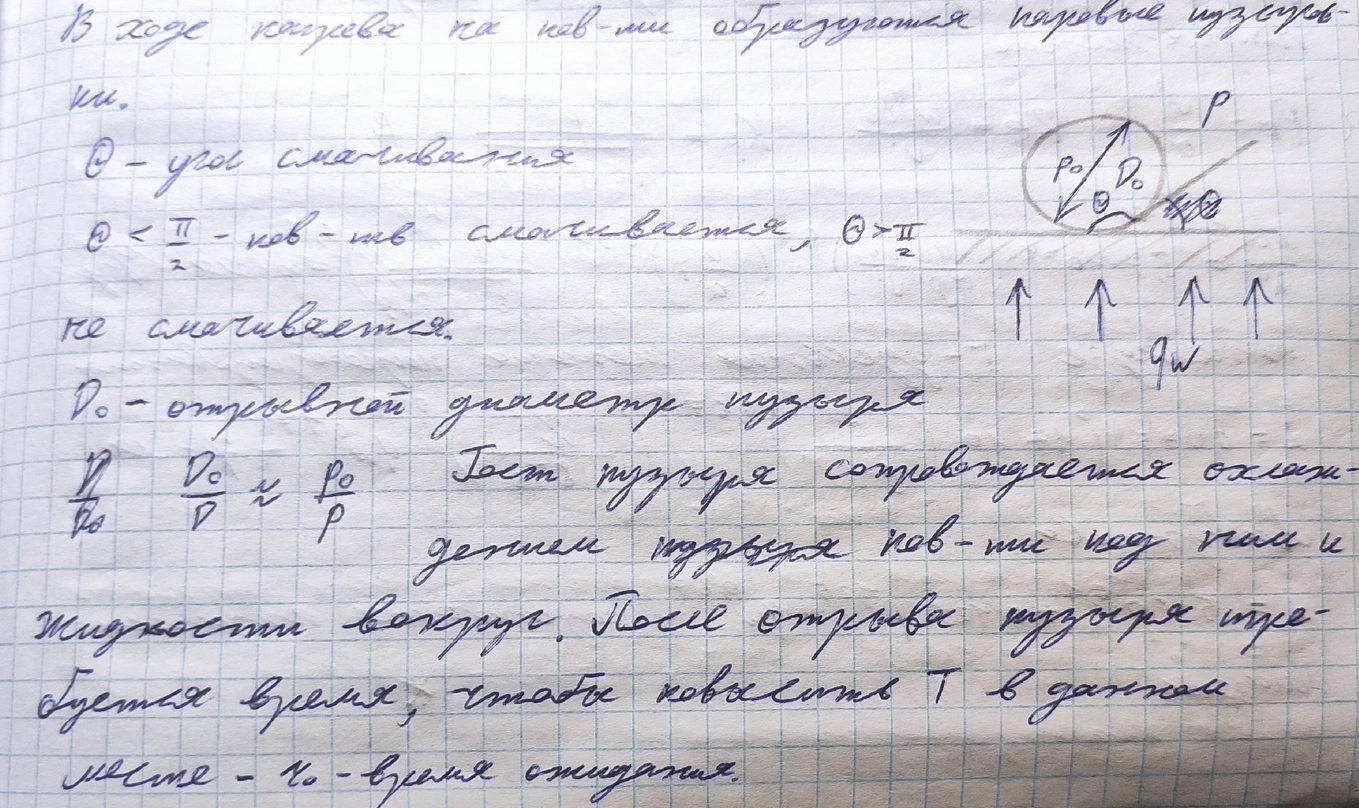 В ходе нагрева на пов-ти образуются паровые пузырь-
ки.
P
Θ – угол смачивания
p₀ D₀
Θ
Θ < π/2 – пов-ть смачивается, Θ > π/2
не смачивается.
q_w
D₀ – отрывной диаметр пузыря
D₀/D ≈ p₀/p Рост пузыря сопровождается охлаж-
дением пов-ти под ним и
жидкости вокруг. После отрыва пузыря тре-
буется время, чтобы повысить T в данном
месте – τ₀ – время ожидания.